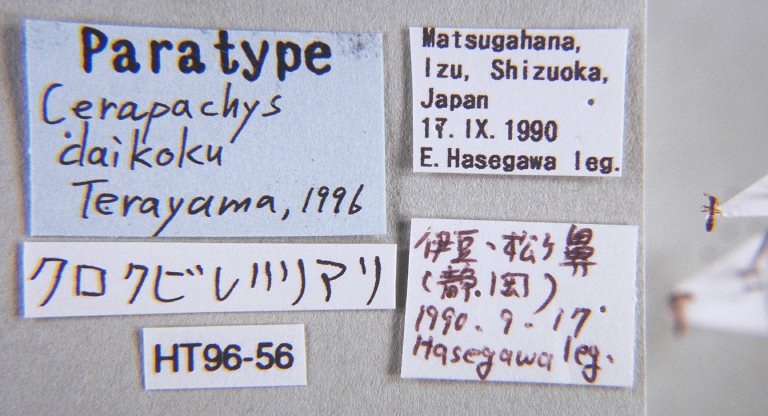 Paratype
Cerapachys
daikoku
Terayama, 1996
クロクビレハリアリ
HT96-56
Matsugahana,
Izu, Shizuoka,
Japan
17. IX. 1990
E. Hasegawa leg.
伊豆、松ヶ鼻
(静岡)
1990. 9. 17.
Hasegawa leg.